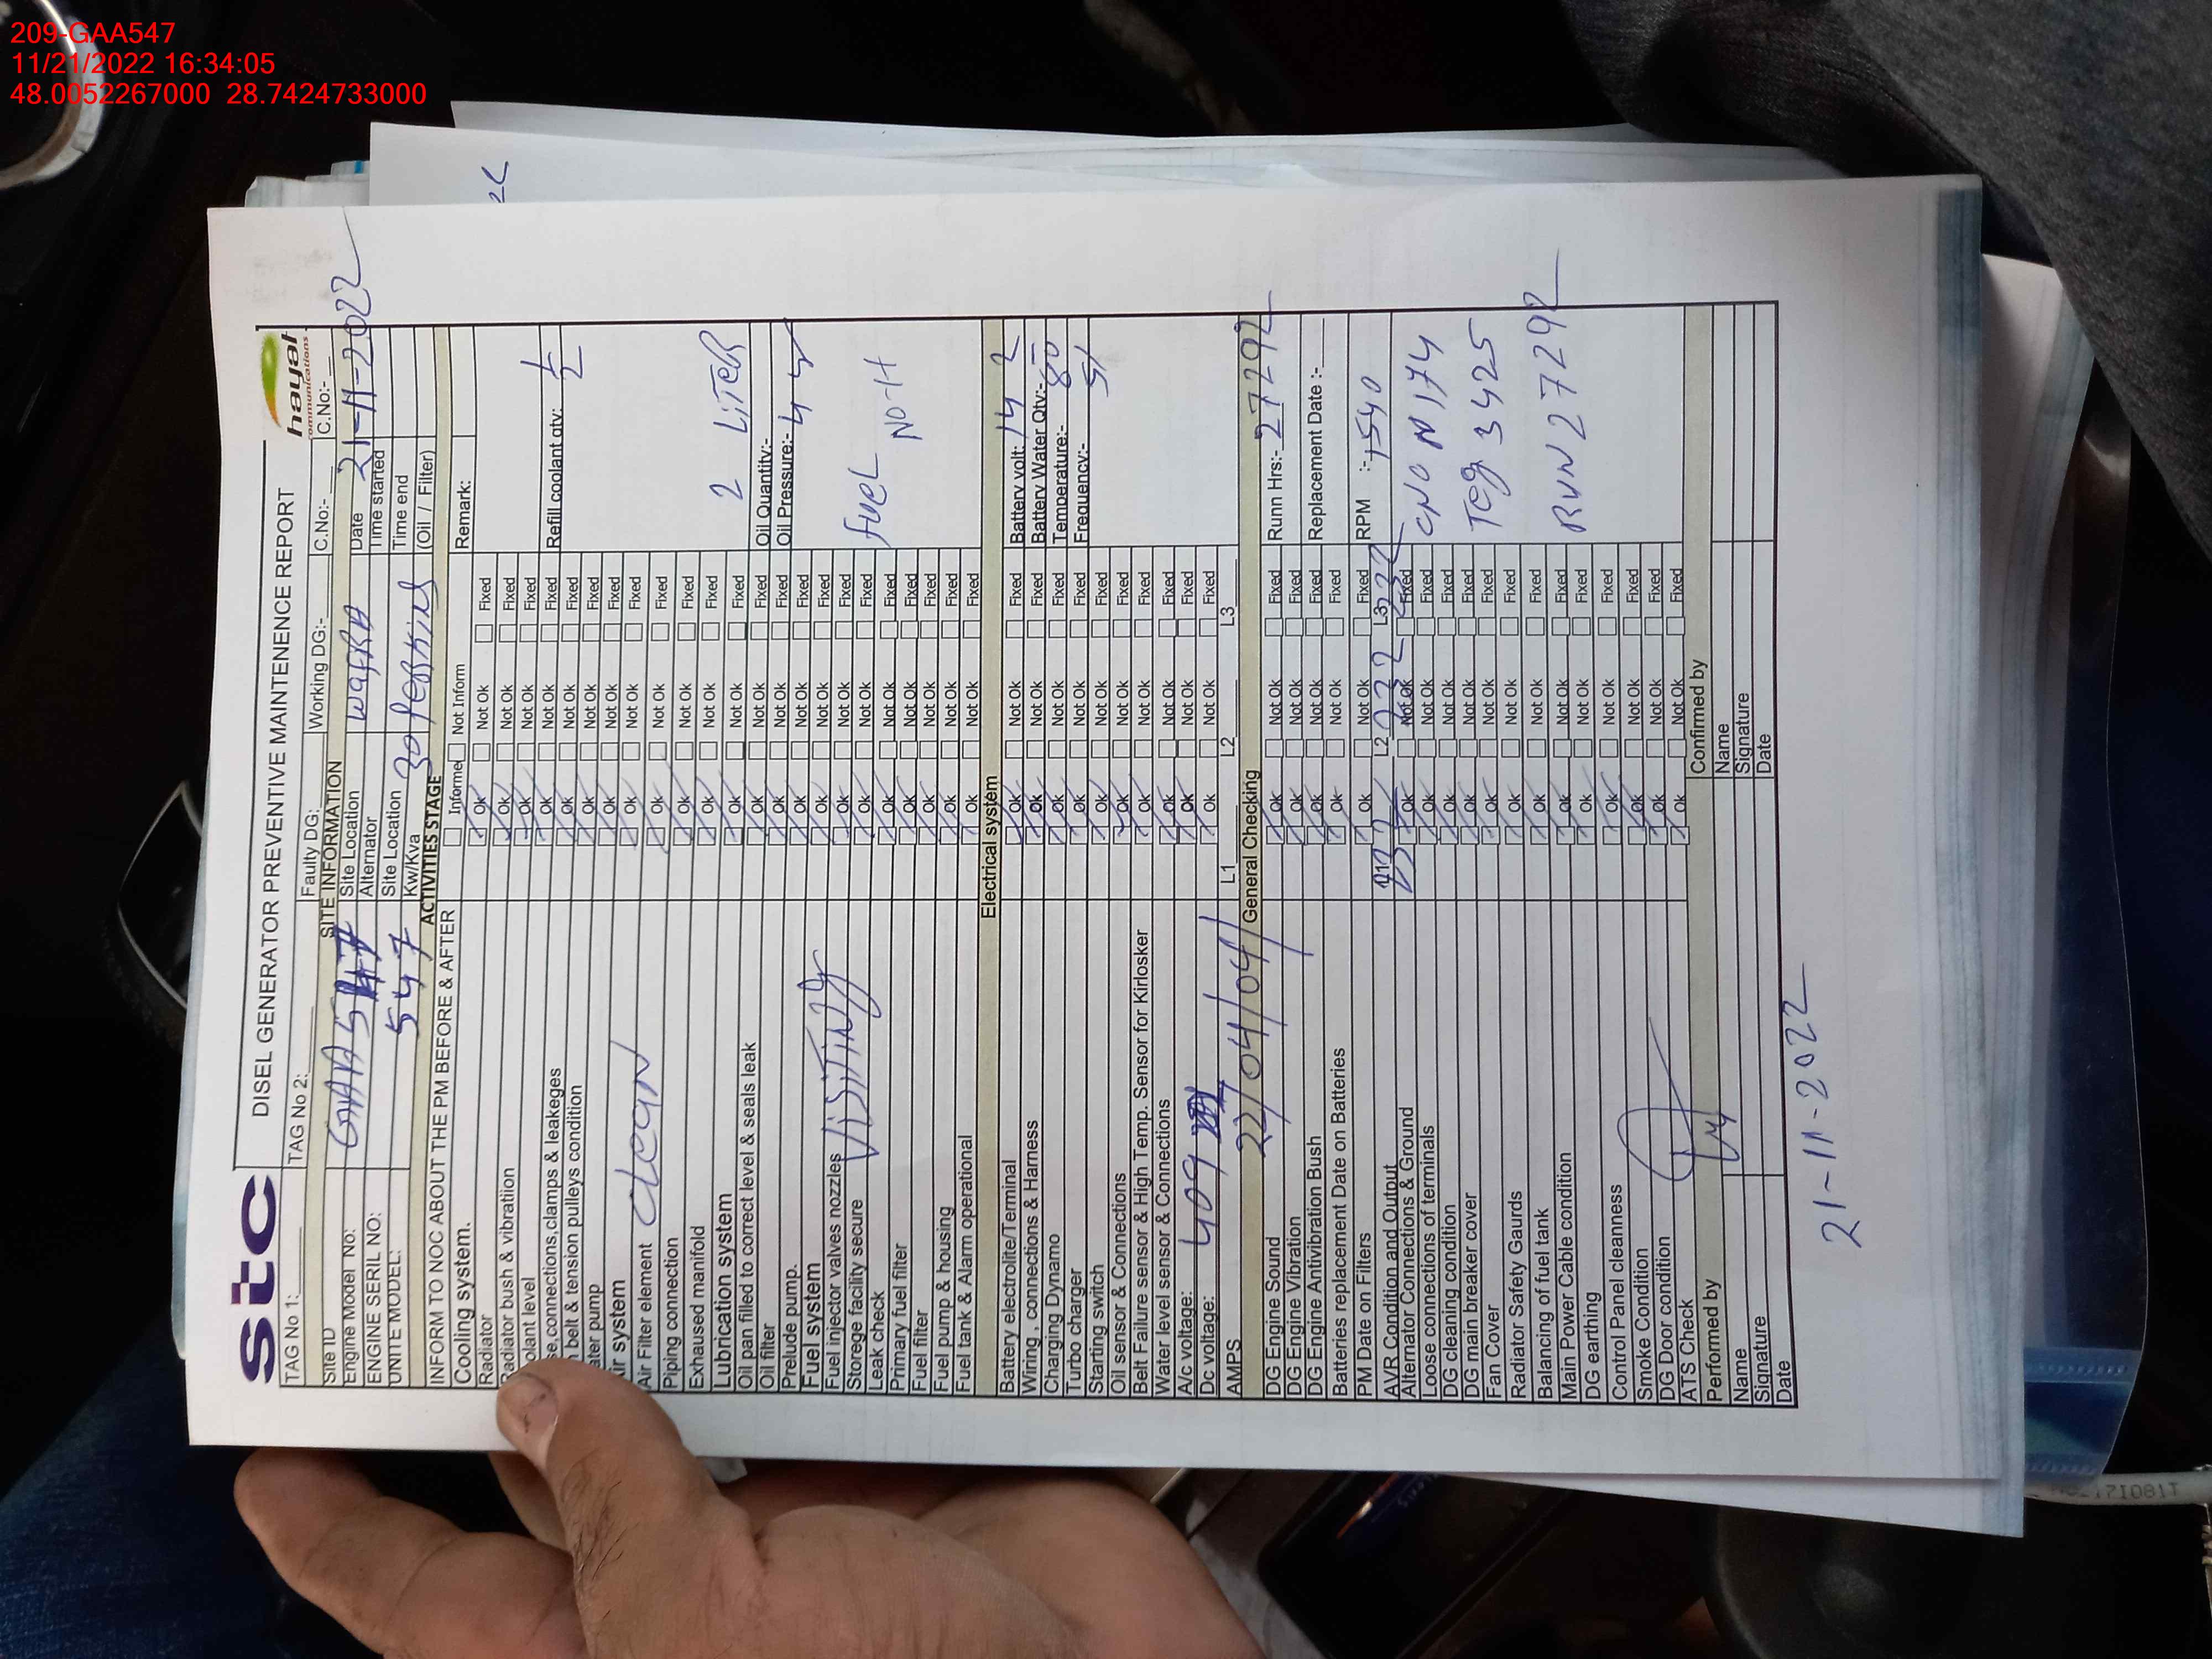 209-GAA547
11/21/2022 16:34:05
48.0052267000 28.7424733000
stc
DISEL GENERATOR PREVENTIVE MAINTENENCE REPORT
hayat
communications
TAG No 1: TAG No 2: Faulty DG: Working DG:- C.No:- C.No:-
SITE INFORMATION
Site ID GAAA 547 Site Location Wafra Date 21-11-2022
Engine Model No: Alternator Time started
ENGINE SERIL NO: 547 Site Location Time end
UNITE MODEL: Kw/Kva 30 Perkins (Oil / Filter)
ACTIVITIES STAGE
INFORM TO NOC ABOUT THE PM BEFORE & AFTER Informe Not Inform Remark:
Cooling system.
Radiator Ok Not Ok Fixed
Radiator bush & vibration Ok Not Ok Fixed
oolant level Ok Not Ok Fixed
se,connections,clamps & leakeges Ok Not Ok Fixed Refill coolant qty: 1/2
n belt & tension pulleys condition Ok Not Ok Fixed
ater pump Ok Not Ok Fixed
ir system Ok Not Ok Fixed
Air Filter element Clean Ok Not Ok Fixed
Piping connection Ok Not Ok Fixed
Exhaused manifold Ok Not Ok Fixed
Lubrication system Ok Not Ok Fixed 2 LiTeR
Oil pan filled to correct level & seals leak Ok Not Ok Fixed
Oil filter Ok Not Ok Fixed Oil Quantity:-
Prelude pump. Ok Not Ok Fixed Oil Pressure:- 4-5
Fuel system Ok Not Ok Fixed
Fuel injector valves nozzles Ok Not Ok Fixed
Storege facility secure VisiTiNg Ok Not Ok Fixed
Leak check Ok Not Ok Fixed FUeL NO-H
Primary fuel filter Ok Not Ok Fixed
Fuel filter Ok Not Ok Fixed
Fuel pump & housing Ok Not Ok Fixed
Fuel tank & Alarm operational Ok Not Ok Fixed
Electrical system
Battery electrolite/Terminal Ok Not Ok Fixed Battery volt: 14 2
Wiring , connections & Harness Ok Not Ok Fixed Battery Water Qty:-
Charging Dynamo Ok Not Ok Fixed Temperature:- 80
Turbo charger Ok Not Ok Fixed Frequency:- 51
Starting switch Ok Not Ok Fixed
Oil sensor & Connections Ok Not Ok Fixed
Belt Failure sensor & High Temp. Sensor for Kirlosker Ok Not Ok Fixed
Water level sensor & Connections Ok Not Ok Fixed
A/c voltage: 409 Ok Not Ok Fixed
Dc voltage: Ok Not Ok Fixed
AMPS 22/04/04/ L1 L2 L3
General Checking
DG Engine Sound Ok Not Ok Fixed Runn Hrs:- 27292
DG Engine Vibration Ok Not Ok Fixed
DG Engine Antivibration Bush Ok Not Ok Fixed Replacement Date :-
Batteries replacement Date on Batteries Ok Not Ok Fixed
PM Date on Filters Ok Not Ok Fixed RPM :- 1540
AVR Condition and Output L2 L3
Alternator Connections & Ground Ok Not Ok Fixed
Loose connections of terminals Ok Not Ok Fixed CNO N 174
DG cleaning condition Ok Not Ok Fixed
DG main breaker cover Ok Not Ok Fixed Teg 3425
Fan Cover Ok Not Ok Fixed
Radiator Safety Gaurds Ok Not Ok Fixed
Balancing of fuel tank Ok Not Ok Fixed RUN 27292
Main Power Cable condition Ok Not Ok Fixed
DG earthing Ok Not Ok Fixed
Control Panel cleanness Ok Not Ok Fixed
Smoke Condition Ok Not Ok Fixed
DG Door condition Ok Not Ok Fixed
ATS Check Ok Not Ok Fixed
Performed by Confirmed by
Name Name
Signature Signature
Date Date
21-11-2022